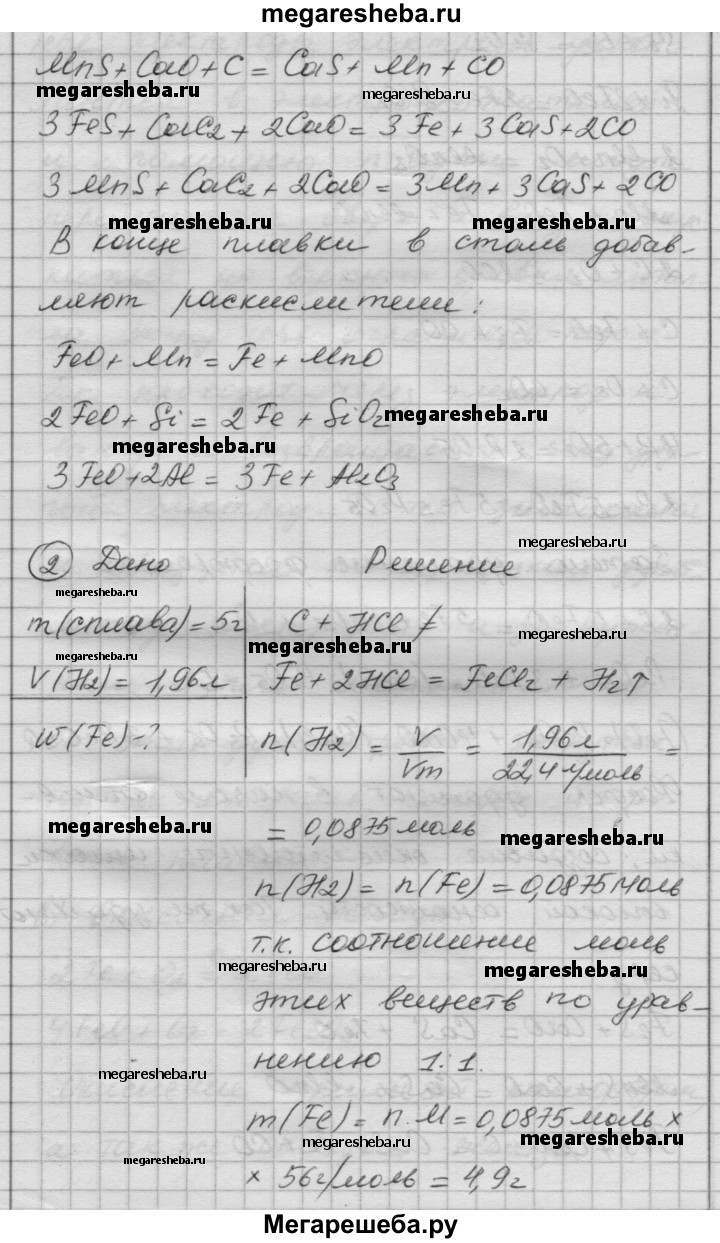 megaresheba.ru
MnS + CaO + C = CaS + Mn + CO
megaresheba.ru megaresheba.ru
3FeS + CaC2 + 2CaO = 3Fe + 3CaS + 2CO
3MnS + CaC2 + 2CaO = 3Mn + 3CaS + 2CO
megaresheba.ru megaresheba.ru
В конце плавки в сталь добав-
ляют раскислители:
FeO + Mn = Fe + MnO
2FeO + Si = 2Fe + SiO2 megaresheba.ru
megaresheba.ru
3FeO + 2Al = 3Fe + Al2O3
megaresheba.ru
2 Дано Решение
megaresheba.ru
m(сплава) = 5г C + HCl ≠
megaresheba.ru megaresheba.ru
megaresheba.ru
V(H2) = 1,96л Fe + 2HCl = FeCl2 + H2↑
w(Fe) - ? n(H2) = V/Vm = 1,96л/22,4 л/моль =
megaresheba.ru = 0,0875 моль megaresheba.ru
n(H2) = n(Fe) = 0,0875 моль
т.к. соотношение моль
megaresheba.ru megaresheba.ru
этих веществ по урав-
нению 1:1.
megaresheba.ru megaresheba.ru
m(Fe) = n·M = 0,0875 моль ×
megaresheba.ru megaresheba.ru
megaresheba.ru
× 56г/моль = 4,9г
Мегарешеба.ру